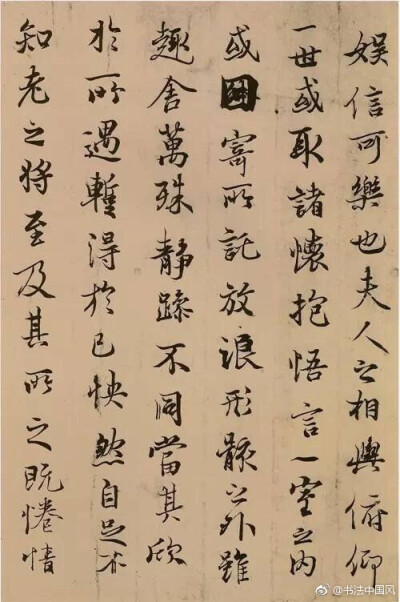 娛信可樂也夫人之相與俯仰
一世或取諸懷抱悟言一室之內
或因寄所託放浪形骸之外雖
趣舍萬殊靜躁不同當其欣
於所遇蹔得於己怏然自足不
知老之將至及其所之既惓情
@书法中国风